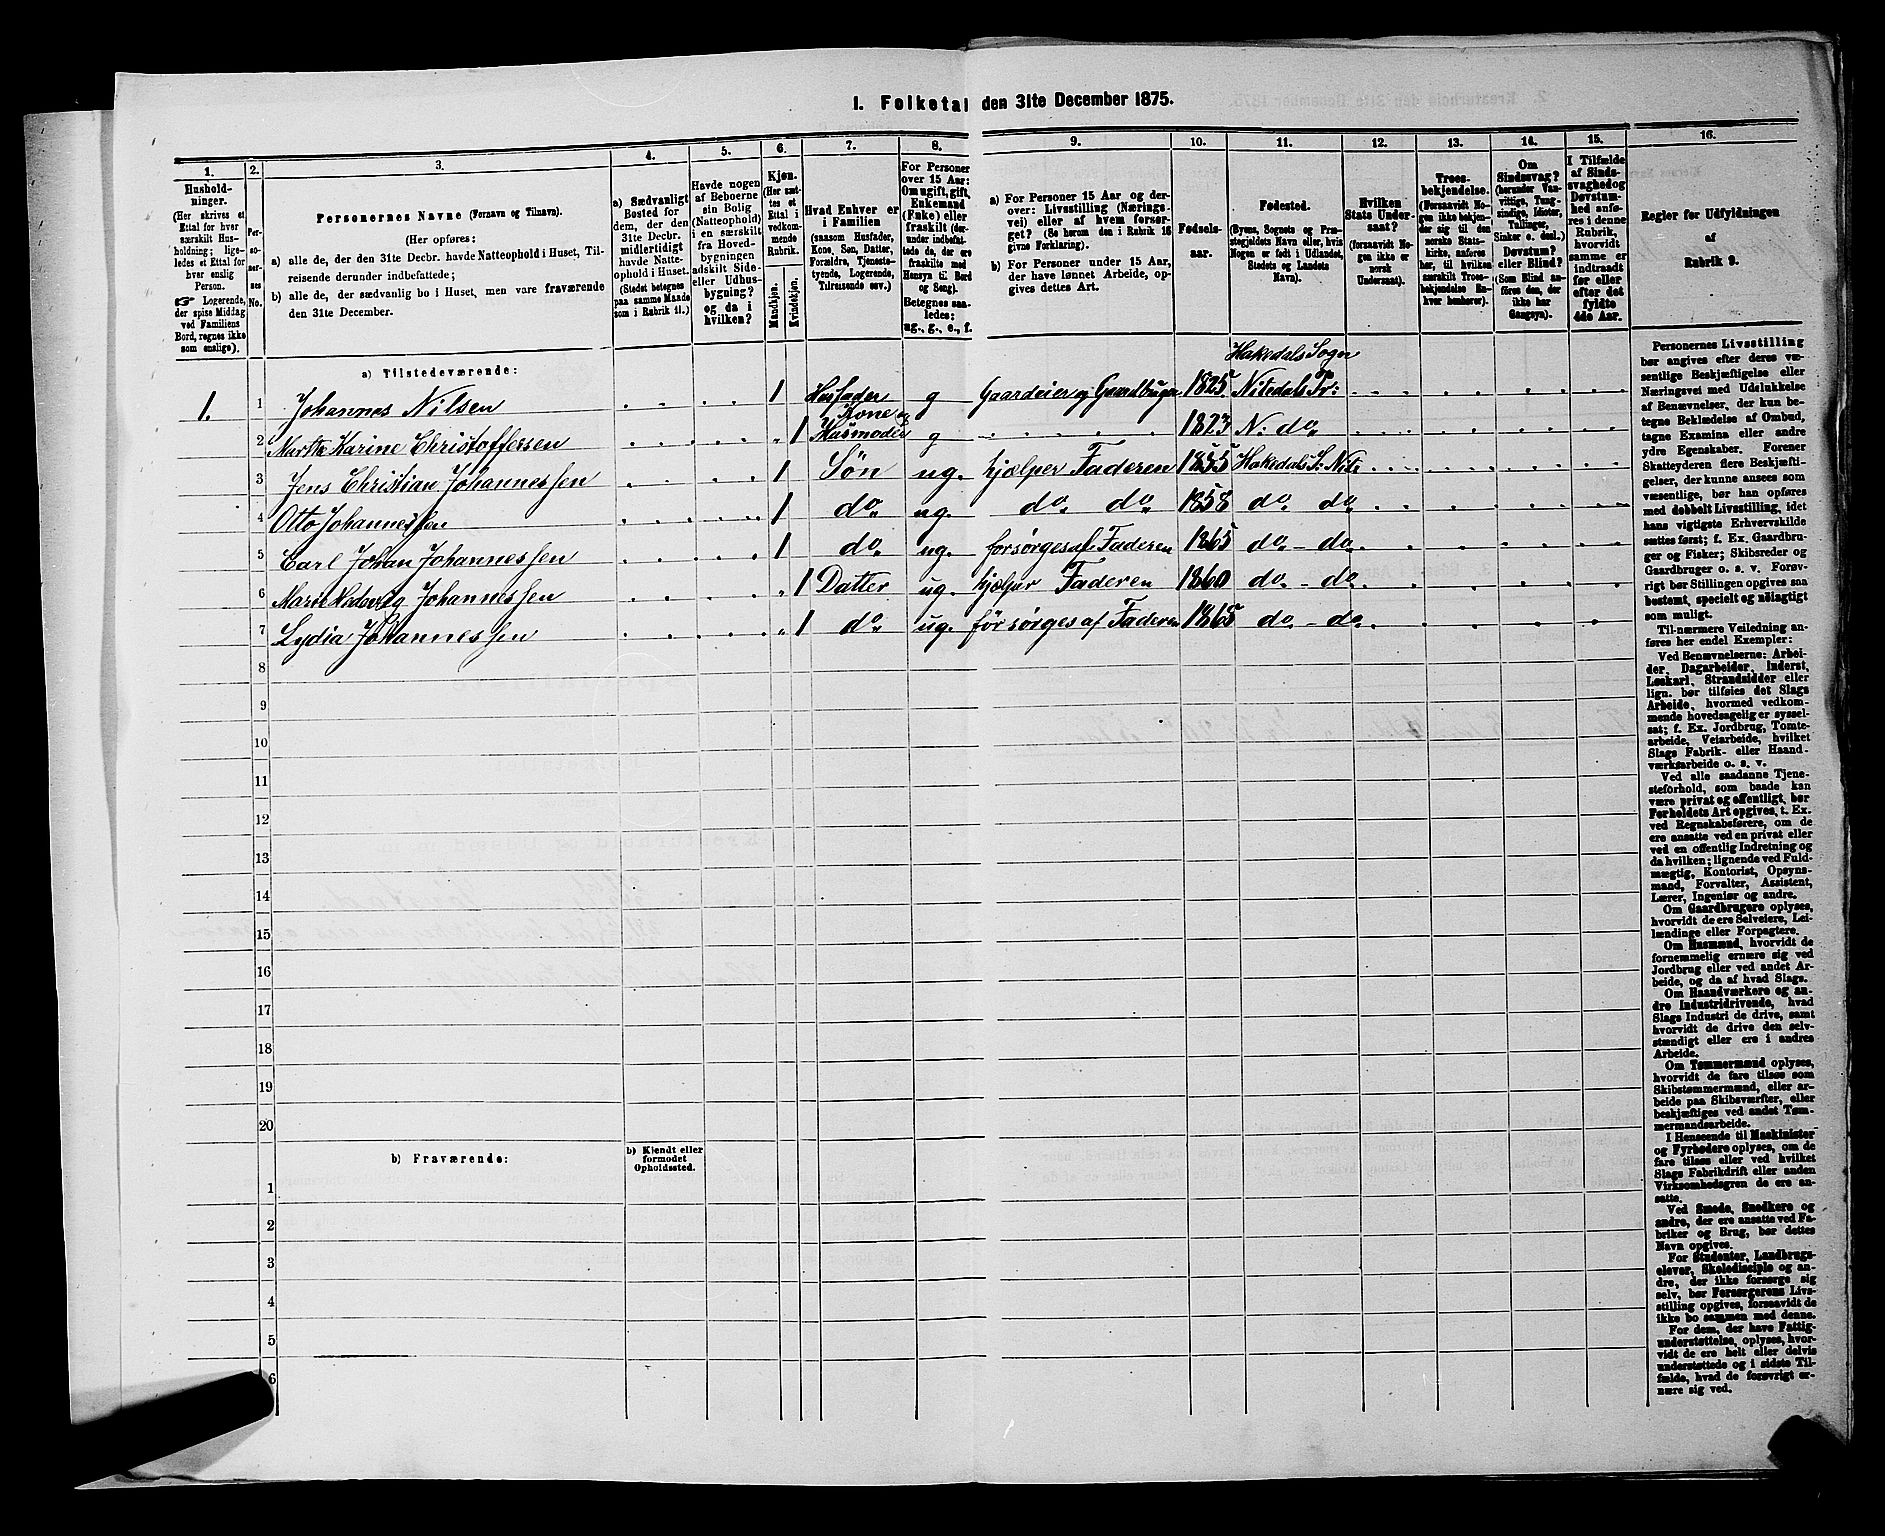 1. Folketal den 31te December 1875.
1.
2.
3.
4.
5.
6.
7.
8.
9.
10.
11.
12.
13.
14.
15.
16.
Hushold-
ninger.
(Her skrives et
Ettal for hver
særskilt Hus-
holdning; lige-
ledes et Ettal for
hver enslig
Person.
☞ Logerende,
der spise Middag
ved Familiens
Bord, regnes ikke
som enslige).
Per-
so-
ner-
nes
No.
Personernes Navne (Fornavn og Tilnavn).
(Her opføres:
a) alle de, der den 31te Decbr. havde Natteophold i Huset, Til-
reisende derunder indbefattede;
b) alle de, der sædvanlig bo i Huset, men vare fraværende
den 31te December.
a) Sædvanligt
Bosted for
dem, der den
31te Decbr.
midlertidigt
havde Natte-
ophold i Huset.
(Stedet betegnes
paa samme Maade
som i Rubrik 11.)
Havde nogen
af Beboerne
sin Bolig
(Natteophold)
i en særskilt
fra Hoved-
bygningen
adskilt Side-
eller Udhus-
bygning?
og da i
hvilken?
Kjøn.
(Her sæt-
tes et
Ettal i
vedkom-
mende
Rubrik.
Mandkjøn.
Kvindekjøn.
Hvad Enhver er
i Familien
(saasom Husfader,
Kone, Søn, Datter,
Forældre, Tjeneste-
tyende, Logerende,
Tilreisende osv.)
For Personer
over 15 Aar:
Om ugift, gift,
Enkemand
(Enke) eller
fraskilt (der-
under indbefat-
tede de, der ere
fraskilte med
Hensyn til Bord
og Seng).
Betegnes saa-
ledes:
ug., g., e., f.
a) For Personer 15 Aar og der-
over: Livsstilling (Nærings-
vei) eller af hvem forsør-
get? (Se herom den i Rubrik 16
givne Forklaring).
b) For Personer under 15 Aar,
der have lønnet Arbeide, op-
gives dettes Art.
Fødsels-
aar.
Fødested.
(Byens, Sognets og Præ-
stegjeldets Navn eller, hvis
Nogen er født i Udlandet,
Stedets og Landets
Navn).
Hvilken
Stats Under-
saat?
(forsaavidt No-
gen ikke er
norsk
Undersaat).
Troes-
bekjendelse.
(Forsaavidt No-
gen ikke bekjen-
der sig til den
norske Stats-
kirke, anføres
her, til hvilken
særskilt Troes-
bekjendelse En-
hver henhører).
Om
Sindssvag?
(herunder Van-
vittige, Tung-
sindige, Idioter,
Tullinger,
Sinker o. desl.)
Døvstum?
eller Blind?
(Som Blind an-
føres den, der
ikke har
Gangsyn).
I Tilfælde
af Sinds-
svaghed og
Døvstum-
hed anfø-
res i denne
Rubrik,
hvorvidt
samme er
indtraadt
før eller
efter det
fyldte
4de Aar.
Regler for Udfyldningen
af
Rubrik 9.
a) Tilstedeværende:
Hakedals Sogn
1. 1 Johannes Nilsen 1 Husfader g Gaardeier og Gaardbruger 1825 Nitedals Pr:
2 Marthe Karine Christoffersen 1 Kone og Husmoder g 1823 N: do
3 Jens Christian Johannessen 1 Søn ug. hjælper Faderen 1855 Hakedals S: Nite
4 Otto Johannessen 1 do ug. do do 1858 do do
5 Carl Johan Johannessen 1 do ug. forsørges af Faderen 1865 do - do
6 Marie Johannessen 1 Datter ug. hjelper Faderen 1860 do - do
7 Lydia Johannessen 1 do ug. forsørges af Faderen 1865 do - do
8
9
10
11
12
13
14
15
16
17
18
19
20
b) Fraværende:
b) Kjendt eller
formodet
Opholdssted.
1
2
3
4
5
6
Personernes Livsstilling
bør angives efter deres væ-
sentlige Beskjæftigelse eller
Næringsvei med Udelukkelse
af Benævnelser, der kun be-
tegne Beklædelse af Ombud,
tagne Examina eller andre
ydre Egenskaber. Forener
Skatteyderen flere Beskjæfti-
gelser, der kunne ansees som
væsentlige, bør han opføres
med dobbelt Livsstilling, idet
hans vigtigste Erhvervskilde
sættes først; f. Ex. Gaardbru-
ger og Fisker; Skibsreder og
Gaardbruger o. s. v. Forøv-
rigt bør Stillingen opgives saa
bestemt, specielt og nøiagtigt
som muligt.
Til nærmere Veiledning an-
føres her endel Exempler:
Ved Benævnelserne: Arbei-
der, Dagarbeider, Inderst,
Løskarl, Strandsidder eller
lign. bør tilføies det Slags
Arbeide, hvormed vedkom-
mende hovedsagelig er syssel-
sat; f. Ex. Jordbrug, Tomte-
arbeide, Veiarbeide, hvilket
Slags Fabrik- eller Haand-
værksarbeide o. s. v.
Ved alle saadanne Tjene-
steforhold, som baade kan
være privat og offentligt, bør
Forholdets Art opgives, t. Ex.
ved Regnskabsførere, om de
ere ansatte ved en privat eller
ved en offentlig Indretning og
da hvilken; lignende ved Fuld-
mægtig, Kontorist, Opsyns-
mand, Forvalter, Assistent,
Lærer, Ingeniør og andre.
Om Gaardbrugere oplyses,
hvorvidt de ere Selveiere, Lei-
lændinge eller Forpagtere.
Om Husmænd, hvorvidt de
fornemmelig ernære sig ved
Jordbrug eller ved andet Ar-
beide, og da af hvad Slags.
Om Haandværkere og an-
dre Industridrivende, hvad
Slags Industri de drive, samt
hvorvidt de drive den selv-
stændigt eller ere i andres
Arbeide.
Om Tømmermænd oplyses,
hvorvidt de fare tilsøs som
Skibstømmermænd, eller ar-
beide paa Skibsværfter, eller
beskjæftiges ved andet Tøm-
mermandsarbeide.
I Henseende til Maskinister
og Fyrbødere oplyses, om de
fare tilsøs eller ved hvilket
Slags Fabrikdrift eller anden
Virksomhedsgren de ere an-
satte.
Ved Smede, Snedkere og
andre, der ere ansatte ved Fa-
briker og Brug, bør dettes
Navn opgives.
For Studenter, Landbrugs-
elever, Skoledisciple og an-
dre, der ikke forsørge sig
selv, bør Forsørgerens Livs-
stilling opgives, forsaavidt de
ikke bo sammen med denne.
For dem, der have Fattig-
understøttelse, oplyses, hvor-
vidt de ere helt eller delvis
understøttede og i sidste Til-
fælde, hvad de forøvrigt er-
nære sig ved.